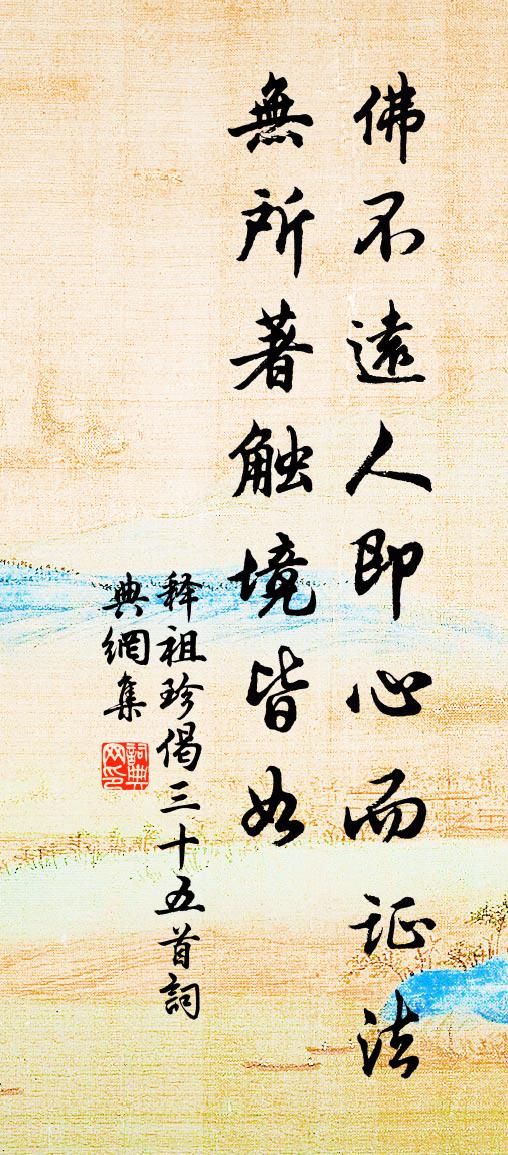 佛不遠人即心而证法
無所著触境皆如
释祖珍偈三十五首詞
典網集
詞典
网印